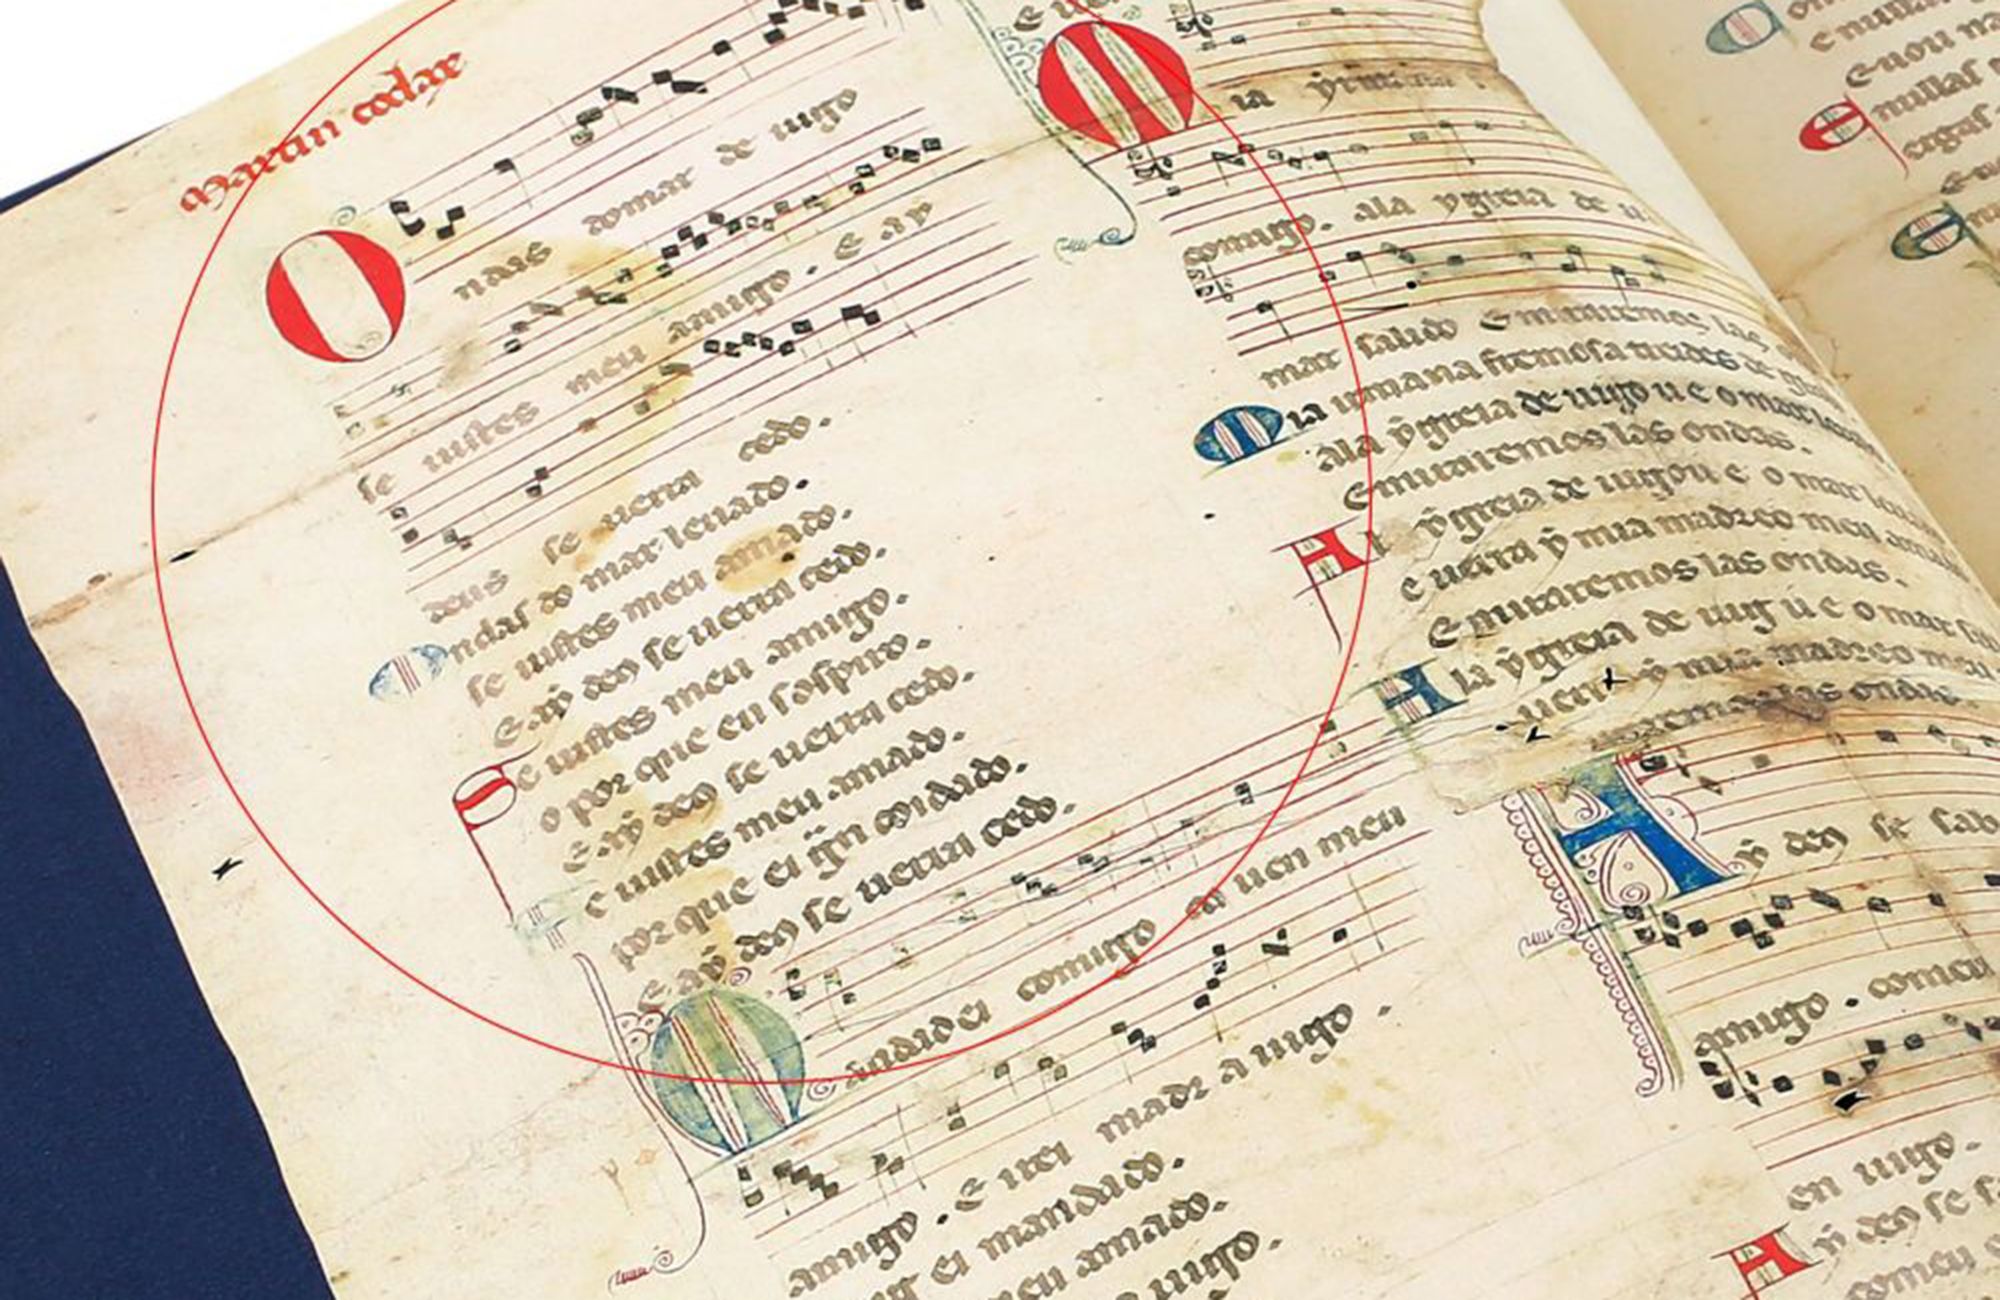 Martin codax
Ondas do mar de uigo
se uistes meu amigo. E ay
deus se uerra cedo.
Ondas do mar leuado.
se uistes meu amado.
E ay deo se uerra cedo.
Se uistes meu amigo.
o por que eu sospiro.
E ay deo se uerra cedo.
Se uistes meu amado.
por que ei gran coidado.
E ay deo se uerra cedo.
Mandad ei comigo ca uen meu
amigo. E irei madr a uigo.
ei mandado.
meu amado.
a uigo.
Mia yrmana
comigo. ala ygreia de u
mar salido E miraremos las
Mia irmana fremosa treides de
ala ygreia de uigo u e o mar leuado
E miraremos las ondas.
A la ygreia de uigo u e o mar leuado
e uerra y mia madre o meu amado
E miraremos las ondas.
A la ygreia de uigo u e o mar sa
uerra y mia madre o meu
miraremos las ondas.
Ay deo se sab
amigo. comeu
en uigo.
Ay deo se s
comeu